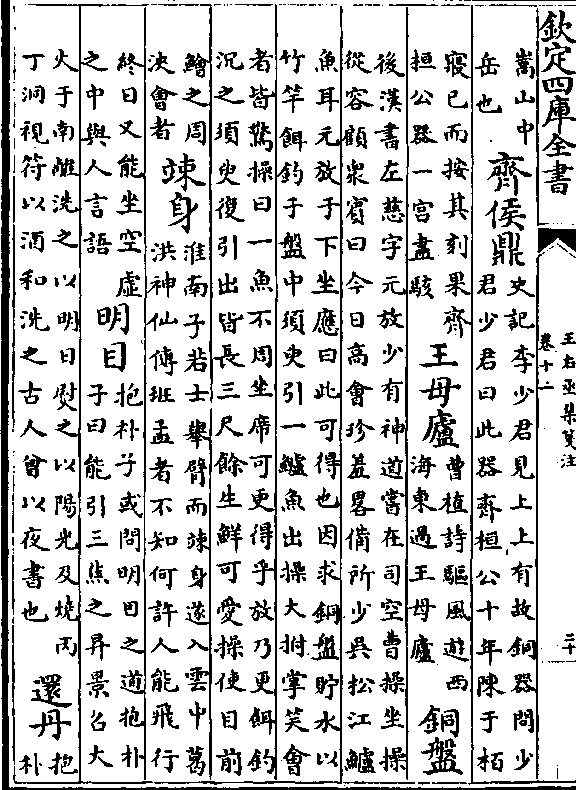 欽定四庫全書
王右丞集箋注
卷十一
二十
嵩山中
岳也
齊侯鼎
史記李少君見上上有故銅器問少
君少君曰此器齊桓公十年陳于栢
寢已而按其刻果齊
桓公器一宫盡駭
王母廬
曹植詩驅風遊西
海東過王母廬
銅盤
後漢書左慈字元放少有神道嘗在司空曹操坐操
從容顧衆賓曰今日高會珍羞畧備所少吳松江鱸
魚耳元放于下坐應曰此可得也因求銅盤貯水以
竹竿餌釣于盤中須臾引一鱸魚出操大拊掌笑會
者皆驚操曰一魚不周坐席可更得乎放乃更餌釣
沉之須臾復引出皆長三尺餘生鮮可愛操使目前
鱠之周
浹會者
竦身
淮南子若士舉臂而竦身遂入雲中葛
洪神仙傳班孟者不知何許人能飛行
終日又能坐空虛
之中與人言語
明目
抱朴子或問明目之道抱朴
子曰能引三焦之昇景召大
火于南離洗之以明日熨之以陽光及燒丙
丁洞視符以酒和洗之古人曾以夜書也
還丹
抱
朴